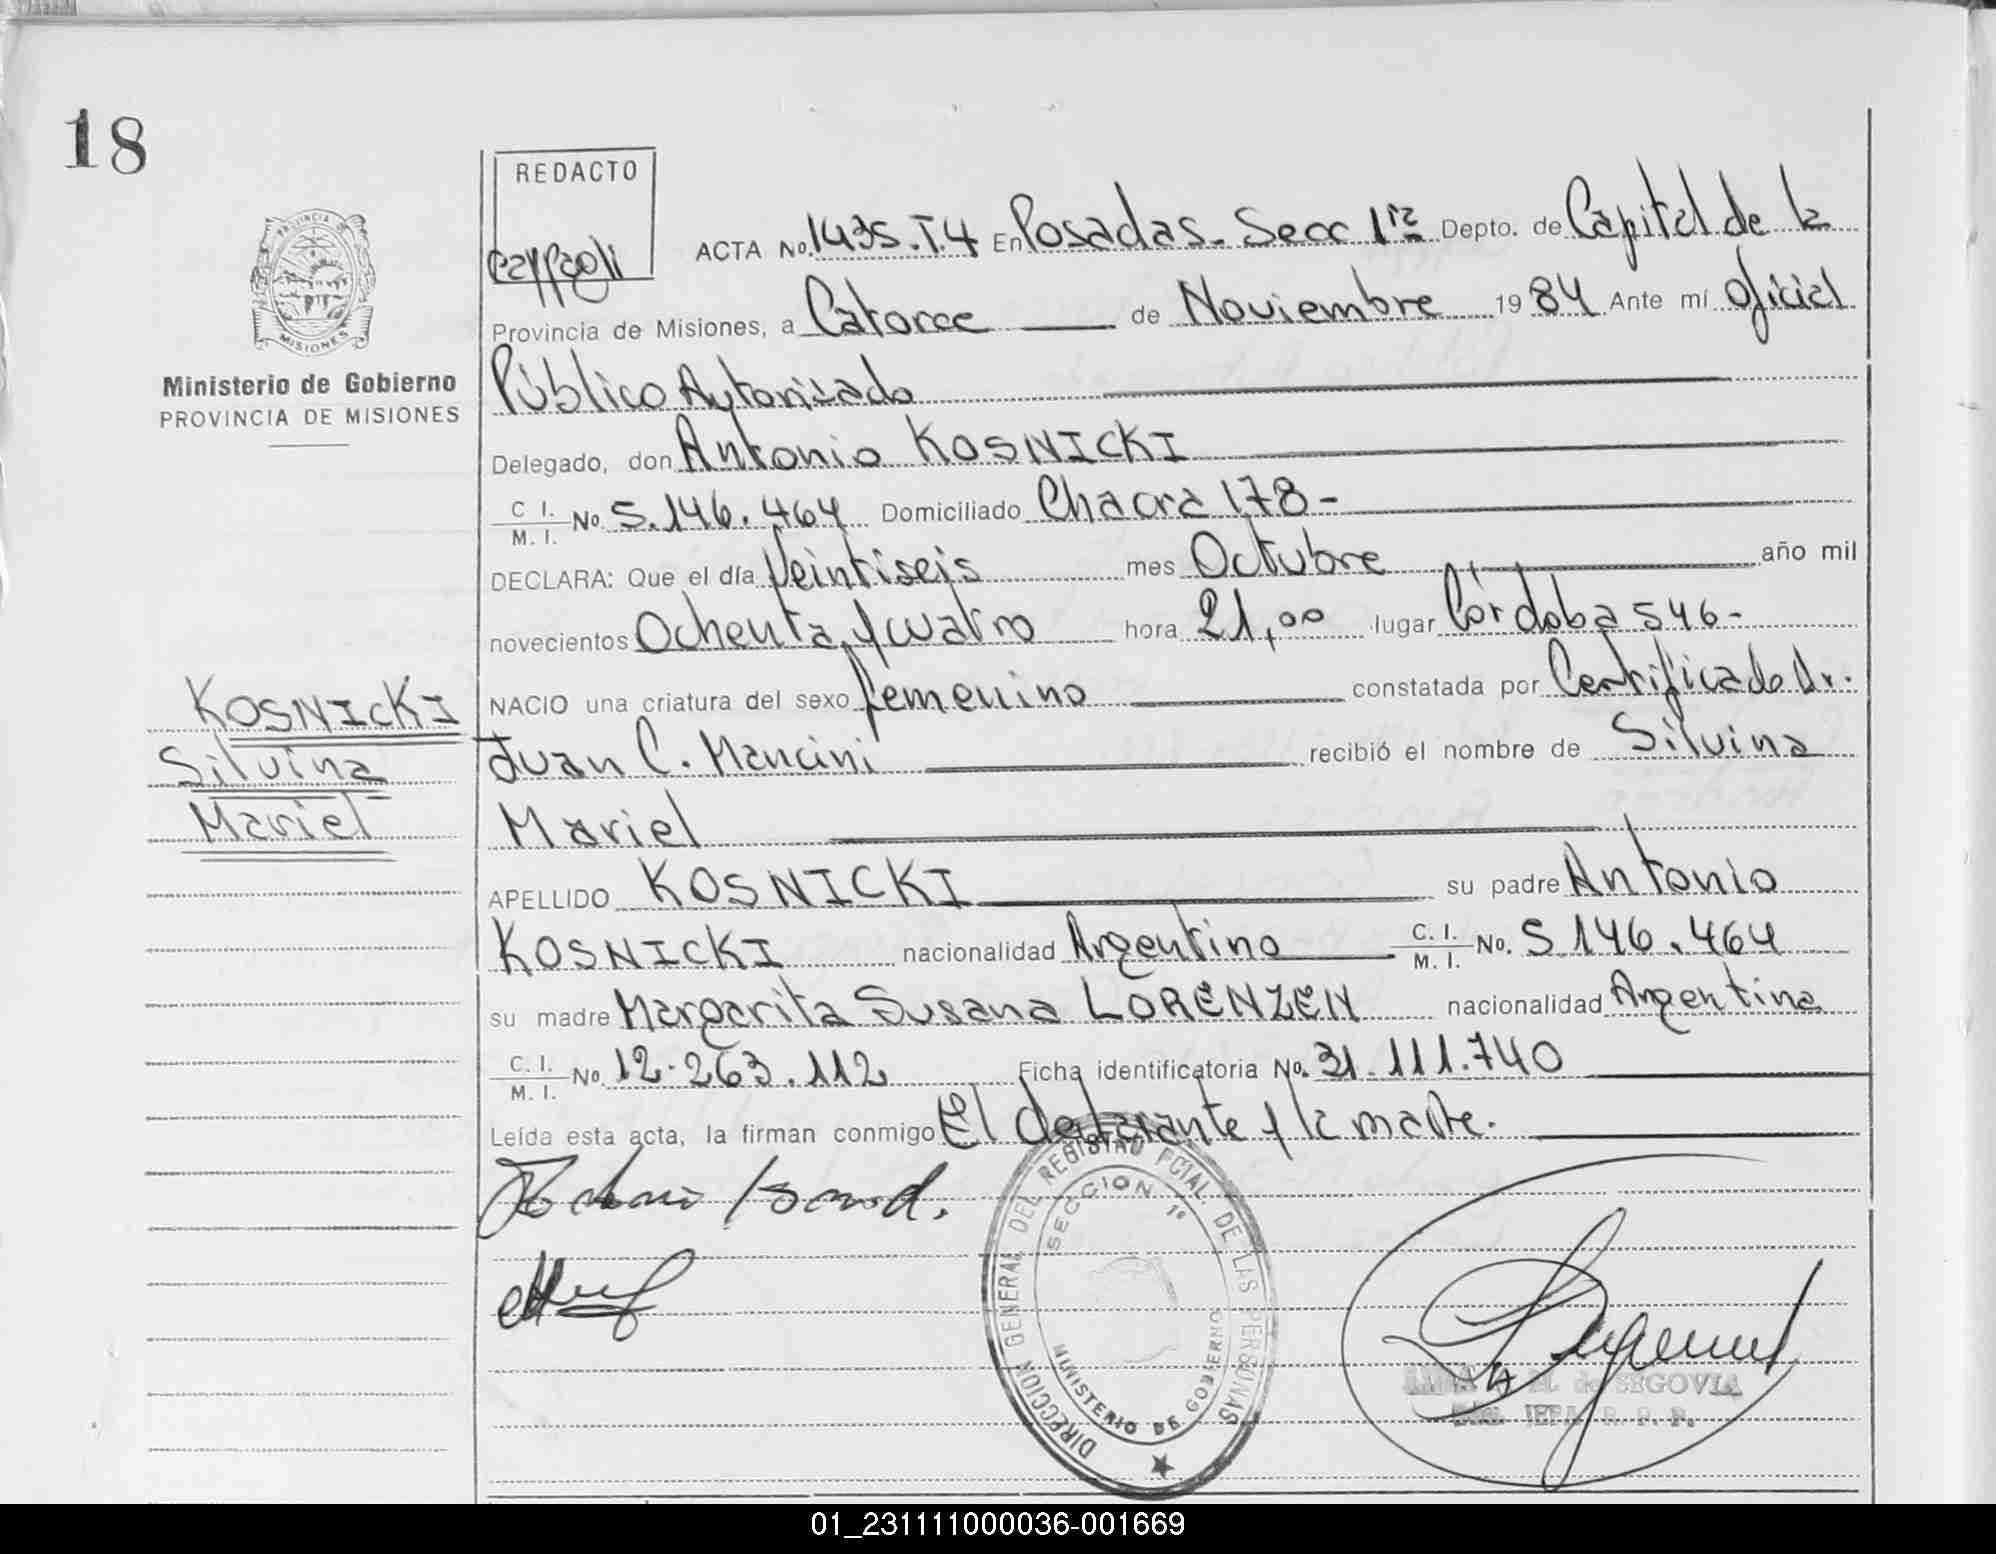 18
REDACTO
ACTA No. 1435.T.4 En Posadas. Secc 1ra Depto. de Capital de la
Provincia de Misiones, a Catorce de Noviembre 1984 Ante mí Oficial
Público Autorizado
Delegado, don Antonio KOSNICKI
C I. M. I. No. 5.146.464 Domiciliado Chacra 178-
DECLARA: Que el día Veintiseis mes Octubre año mil
novecientos Ochenta y cuatro hora 21,00 lugar Córdoba 546-
NACIO una criatura del sexo femenino constatada por Certificado Dr.
Juan C. Mancini recibió el nombre de Silvina
Mariel
APELLIDO KOSNICKI su padre Antonio
KOSNICKI nacionalidad Argentino C. I. M. I. No. 5.146.464
su madre Margarita Susana LORENZEN nacionalidad Argentina
C. I. M. I. No. 12.263.112 Ficha identificatoria No. 31.111.740
Leída esta acta, la firman conmigo El declarante y la madre.
PROVINCIA DE
MISIONES
Ministerio de Gobierno
PROVINCIA DE MISIONES
KOSNICKI
Silvina
Mariel
DIRECCION GENERAL DEL REGISTRO PCIAL. DE LAS PERSONAS
SECCION 1º
MINISTERIO DE GOBIERNO
M. de SEGOVIA
R. P. P.
01_231111000036-001669